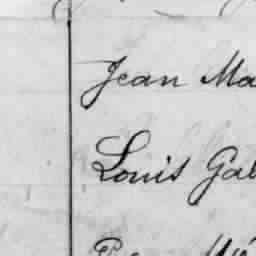 Jean Ma
Louis Gal